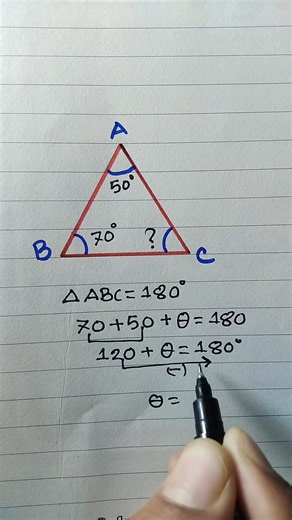 A
50°
B 70° ? C
△ ABC = 180°
70 + 50 + θ = 180
120 + θ = 180°
(-)
θ =